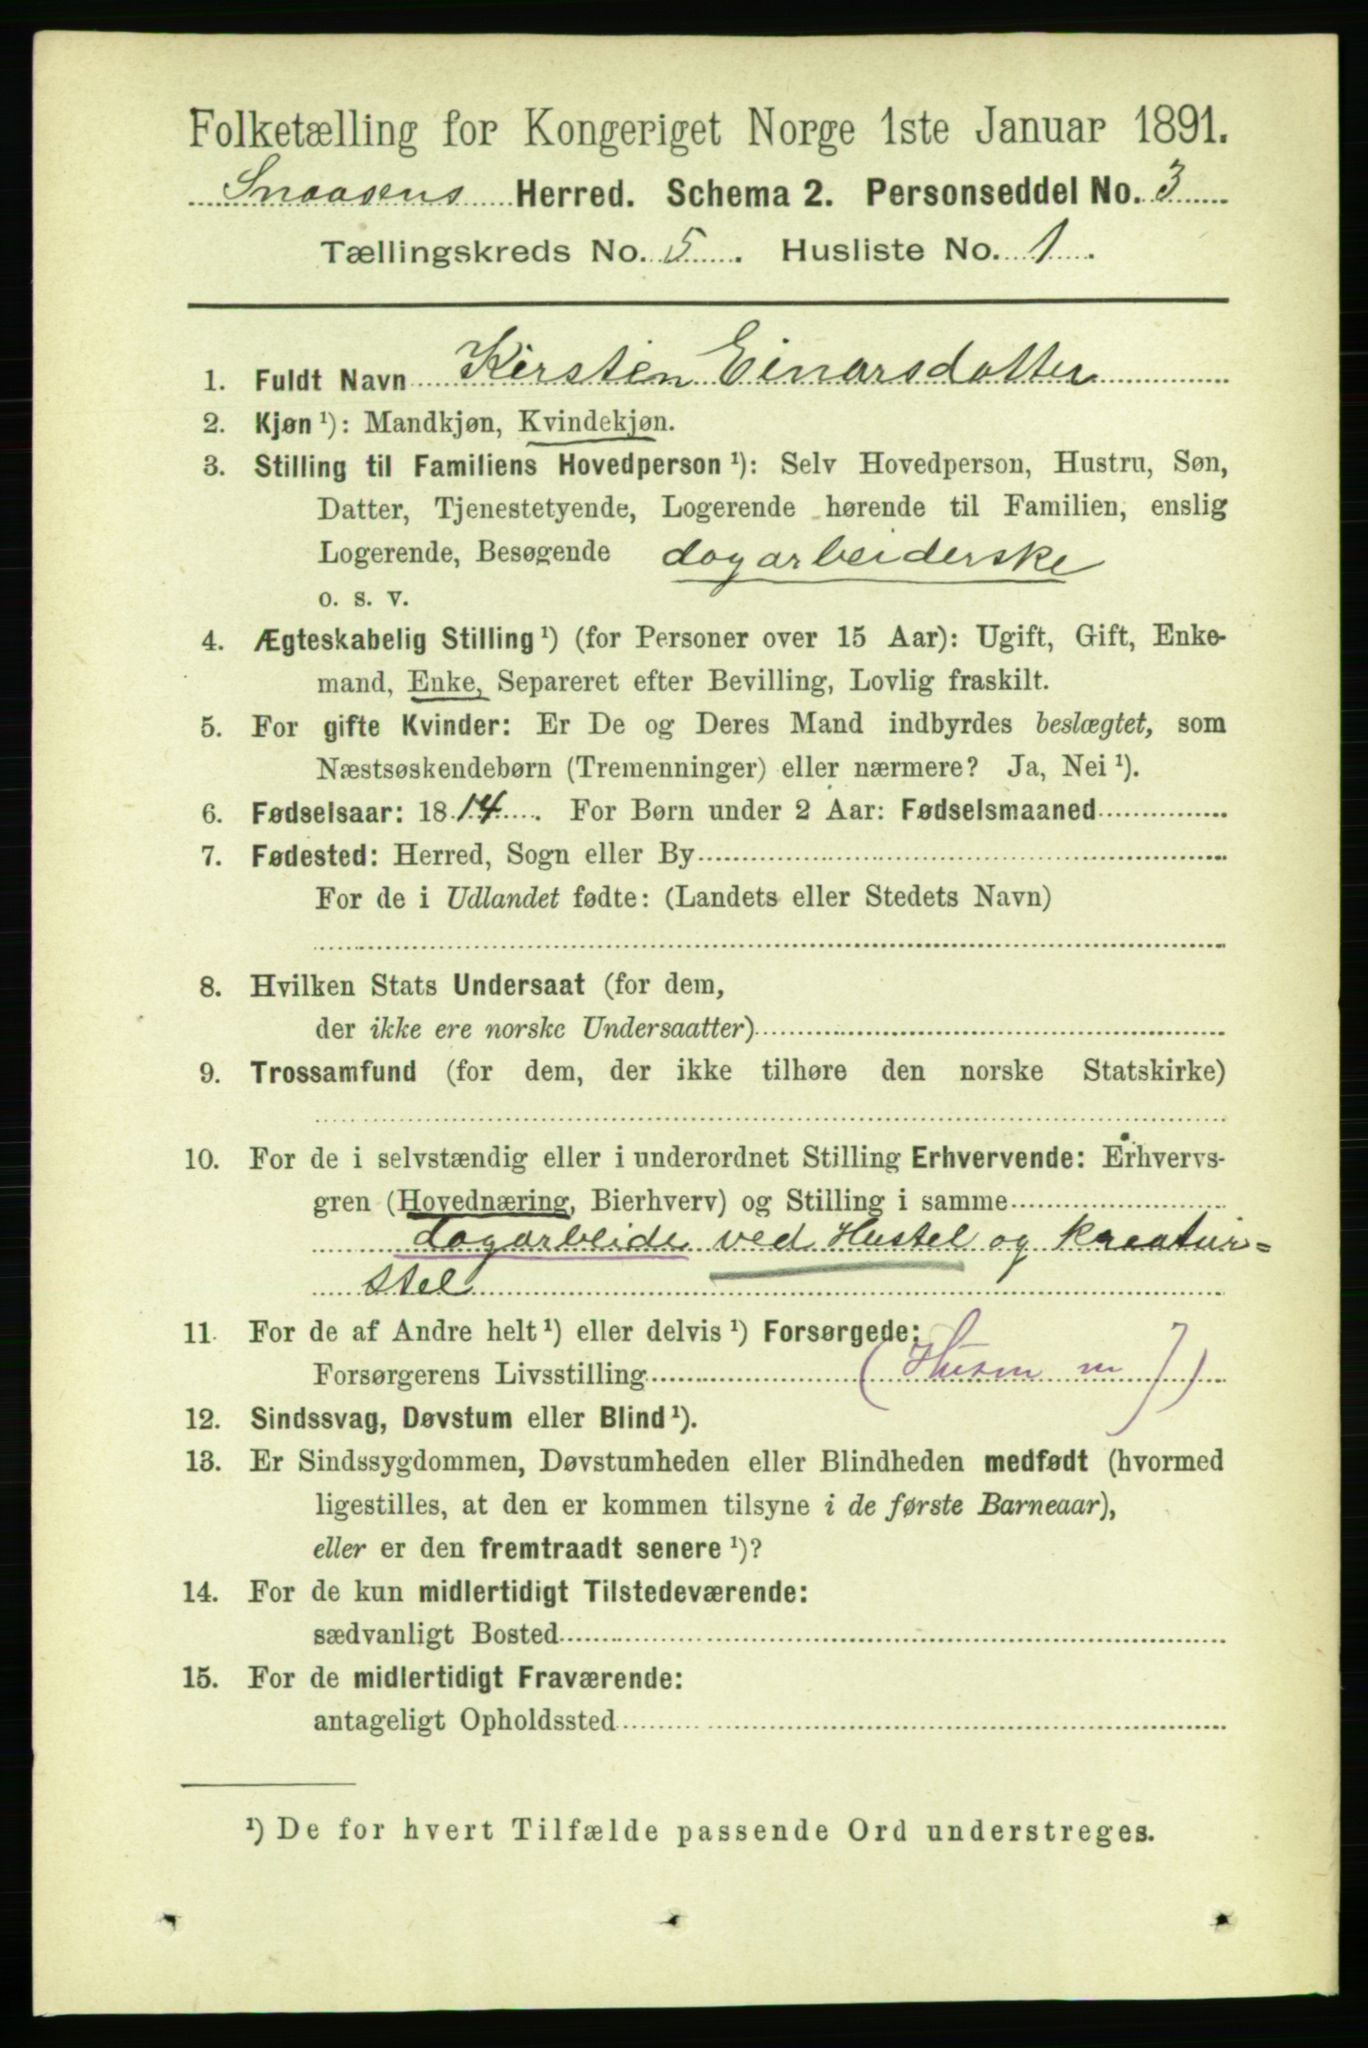 Folketælling for Kongeriget Norge 1ste Januar 1891.
Snaasens Herred. Schema 2. Personseddel No. 3
Tællingskreds No. 5. Husliste No. 1.
1. Fuldt Navn Kirsten Einarsdatter
2. Kjøn ¹): Mandkjøn, Kvindekjøn.
3. Stilling til Familiens Hovedperson ¹): Selv Hovedperson, Hustru, Søn,
Datter, Tjenestetyende, Logerende hørende til Familien, enslig
Logerende, Besøgende dagarbeiderske
o. s. v.
4. Ægteskabelig Stilling ¹) (for Personer over 15 Aar): Ugift, Gift, Enke-
mand, Enke, Separeret efter Bevilling, Lovlig fraskilt.
5. For gifte Kvinder: Er De og Deres Mand indbyrdes beslægtet, som
Næstsøskendebørn (Tremenninger) eller nærmere? Ja, Nei ¹).
6. Fødselsaar: 1814. For Børn under 2 Aar: Fødselsmaaned
7. Fødested: Herred, Sogn eller By
For de i Udlandet fødte: (Landets eller Stedets Navn)
8. Hvilken Stats Undersaat (for dem,
der ikke ere norske Undersaatter)
9. Trossamfund (for dem, der ikke tilhøre den norske Statskirke)
10. For de i selvstændig eller i underordnet Stilling Erhvervende: Erhvervs-
gren (Hovednæring, Bierhverv) og Stilling i samme
dagarbeide ved Hustel og kreatur=
stel
11. For de af Andre helt ¹) eller delvis ¹) Forsørgede:
Forsørgerens Livsstilling (Husm m J)
12. Sindssvag, Døvstum eller Blind ¹).
13. Er Sindssygdommen, Døvstumheden eller Blindheden medfødt (hvormed
ligestilles, at den er kommen tilsyne i de første Barneaar),
eller er den fremtraadt senere ¹)?
14. For de kun midlertidigt Tilstedeværende:
sædvanligt Bosted
15. For de midlertidigt Fraværende:
antageligt Opholdssted
¹) De for hvert Tilfælde passende Ord understreges.